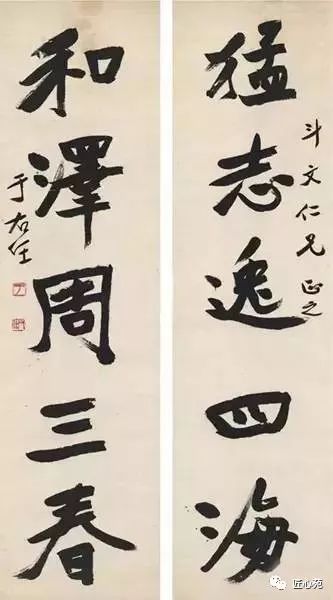 猛志逸四海
斗文仁兄正之
和澤周三春
于右任
匠心苑